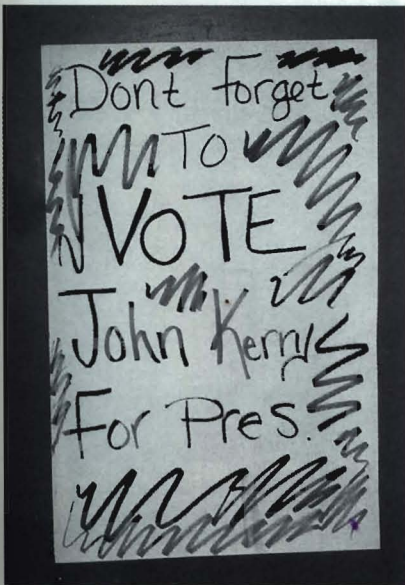 Dont forget
To
VOTE
John Kerry
For Pres.